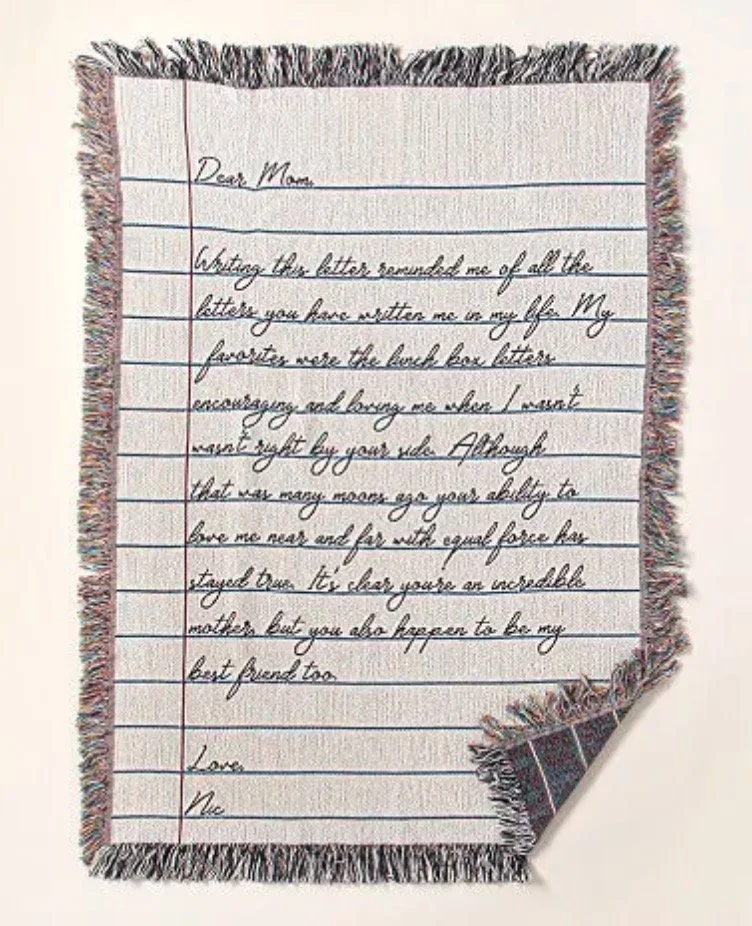 Dear Mom,
Writing this letter reminded me of all the
letters you have written me in my life. My
favorites were the lunch box letters
encouraging and loving me when I wasn't
wasn't right by your side. Although
that was many moons ago your ability to
love me near and far with equal force has
stayed true. It's clear you're an incredible
mother, but you also happen to be my
best friend too.
Love,
Nic